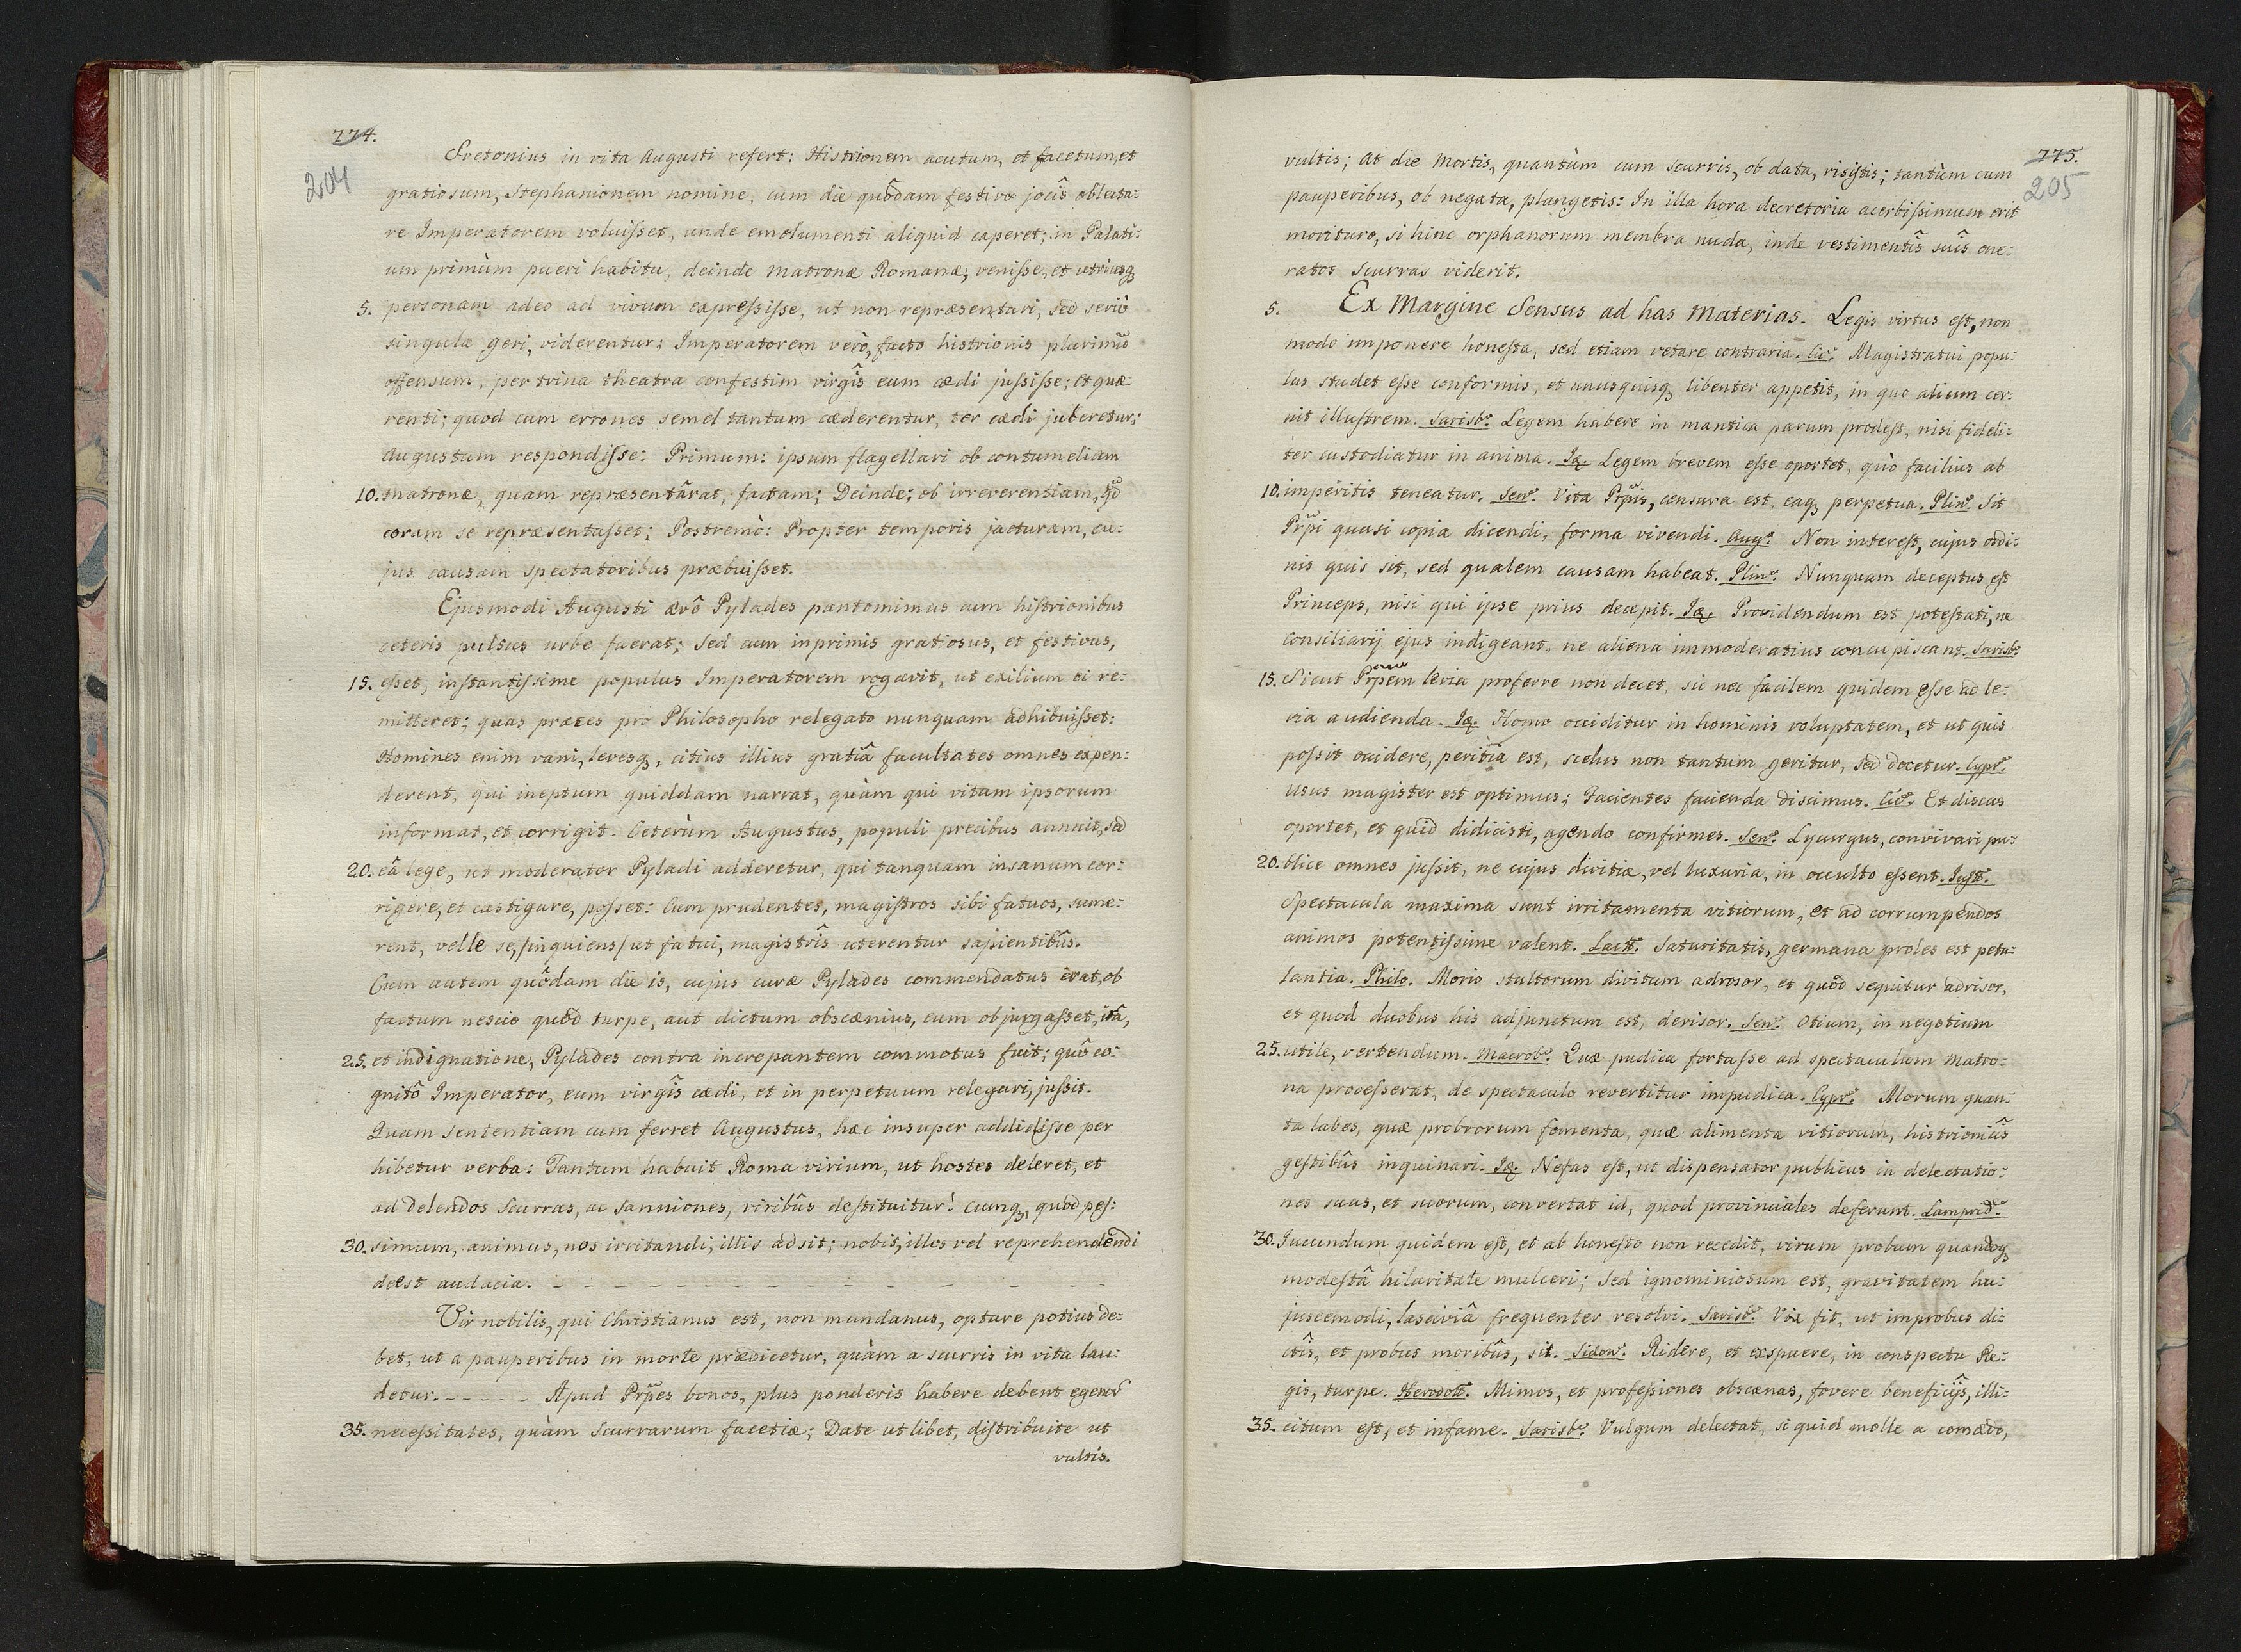 774.
204
Svetonius in vita Augusti refert: Histrionem acutum, et facetum, et
gratiosum, Stephanionem nomine, cum die quôdam festivo jocîs oblecta:
re Imperatorem voluisset, unde emolumenti aliquid caperet; in Palati:
um primùm pueri habitu, deinde matronæ Romanæ, venisse, et utriusq
5. personam adeo ad vivum expressisse, ut non repræsentari, sed seriò
singula geri, viderentur: Imperatorem verò, facto histrionis plurimũ
offensum, per trina theatra confestim virgîs eum cædi jussisse; et quæ:
renti; quod cum errones semel tantum cæderentur, ter cædi juberetur;
Augustum respondisse: Primum: ipsum flagellari ob contumeliam
10. matronæ, quam repræsentârat, factam; Deinde: ob irreverentiam, qd
coram se repræsentasset; Postremò: Propter temporis jacturam, cu:
jus causam spectatoribus præbuisset.
Ejusmodi Augusti ævô Pylades pantomimus cum histrionibus
ceteris pulsus urbe fuerat; Sed cum inprimis gratiosus, et festivus,
15. esset, instantissime populus Imperatorem rogavit, ut exilium ei re:
mitteret; quas preces pro Philosopho relegato nunquam adhibuisset:
Homines enim vani, levesq, citius illius gratiâ facultates omnes expen:
derent, qui ineptum quiddam narrat, quàm qui vitam ipsorum
informat, et corrigit. Ceterùm Augustus, populi precibus annuit, sed
20. eâ lege, ut moderator Pyladi adderetur, qui tanquam insanum cor:
rigere, et castigare, posset: Cum prudentes, magistros sibi fatuos, sume:
rent, velle se, /inquiens/ ut fatui, magistrîs uterentur sapientibûs.
Cum autem quôdam die is, cujus curæ Pylades commendatus erat, ob
factum nescio quod turpe, aut dictum obscænius, eum objurgasset, irâ,
25. et indignatione, Pylades contra increpantem commotus fuit; quô co:
gnitô Imperator, eum virgîs cædi, et in perpetuum relegari, jussit.
Quam sententiam cum ferret Augustus, hæc insuper addidisse per
hibetur verba: Tantum habuit Roma virium, ut hostes deleret, et
ad delendos Scurras, ac Sanniones, viribûs destituitur! Cumq, quod pes:
30. simum, animus, nos irritandi, illis adsit; nobis, illos vel reprehendendi
deest audacia. - - - - - - - - - - - -
Vir nobilis, qui Christianus est, non mundanus, optare potius de:
bet, ut a pauperibus in morte prædicetur, quàm a scurris in vita lau:
detur. - - - - - Apud Prpes bonos, plus ponderis habere debent egenoꝝ
35. necessitates, quàm Scurrarum facetiæ; Date ut libet, distribuite ut
vultis.
775.
205
vultis; At die mortis, quantùm cum scurris, ob data, risistis; tantùm cum
pauperibus, ob negata, plangetis: In illa hora decretoria acerbissimum erit
morituro, si hinc orphanorum membra nuda, inde vestimentîs suîs one:
ratos Scurras viderit.
5. Ex Margine Sensus ad has Materias. Legis virtus est, non
modo imponere honesta, sed etiam vetare contraria. Cic. Magistratui popu:
lus studet esse conformis, et unusquisq libenter appetit, in quo alium cer:
nit illustrem. Sarisb. Legem habere in mantica parum prodest, nisi fideli:
ter custodiatur in anima. Iq. Legem brevem esse oportet, quò facilius ab
10. imperitis teneatur. Sen. Vita Prpis, censura est, eaq perpetua. Plin. Sit
Prpi quasi copia dicendi, forma vivendi. Aug. Non interest, cujus ordi:
nis quis sit, sed qualem causam habeat. Plin. Nunquam deceptus est
Princeps, nisi qui ipse prius decepit. Iq. Providendum est potestati, ne
consiliarij ejus indigeant, ne aliena immoderatius concupiscant. Sarisb.
15. Sicut Prpem levia proferre non decet, sic nec facilem quidem esse ad le:
via audienda. Iq. Homo occiditur in hominis voluptatem, et ut quis
possit occidere, peritia est, scelus non tantum geritur, sed docetur. Cypr.
Usus magister est optimus; Facientes facienda discimus. Cic. Et discas
oportet, et quid didicisti, agendo confirmes. Sen. Lycurgus, convivari pu:
20. blice omnes jussit, ne cujus divitiæ, vel luxuria, in occulto essent. Just.
Spectacula maxima sunt irritamenta vitiorum, et ad corrumpendos
animos potentissime valent. Lact. Saturitatis, germana proles est petu:
lantia. Philo. Morio stultorum divitum adrosor, et quod sequitur adrisor,
et quod duobus his adjunctum est, derisor. Sen. Otium, in negotium
25. utile, vertendum. Macrob. Quæ pudica fortasse ad spectaculum matro:
na processerat, de spectaculo revertitur impudica. Cypr. Morum quan:
ta labes, quæ probrorum fomenta, quæ alimenta vitiorum, histrionicîs
gestibûs inquinari. Iq. Nefas est, ut dispensator publicus in delectatio:
nes suas, et suorum, convertat id, quod provinciales deferunt. Lamprid.
30. Jucundum quidem est, et ab honesto non recedit, virum probum quandoq
modestâ hilaritate mulceri; Sed ignominiosum est, gravitatem hu:
juscemodi, lasciviâ frequenter resolvi. Sarisb. Vix fit, ut improbus di:
ctîs, et probus moribûs, sit. Sidon. Ridere, et exspuere, in conspectu Re:
gis, turpe. Herodot. Mimos, et professiones obscænas, fovere beneficijs, illi:
35. citum est, et infame. Sarisb. Vulgum delectat, si quid molle a comædo,